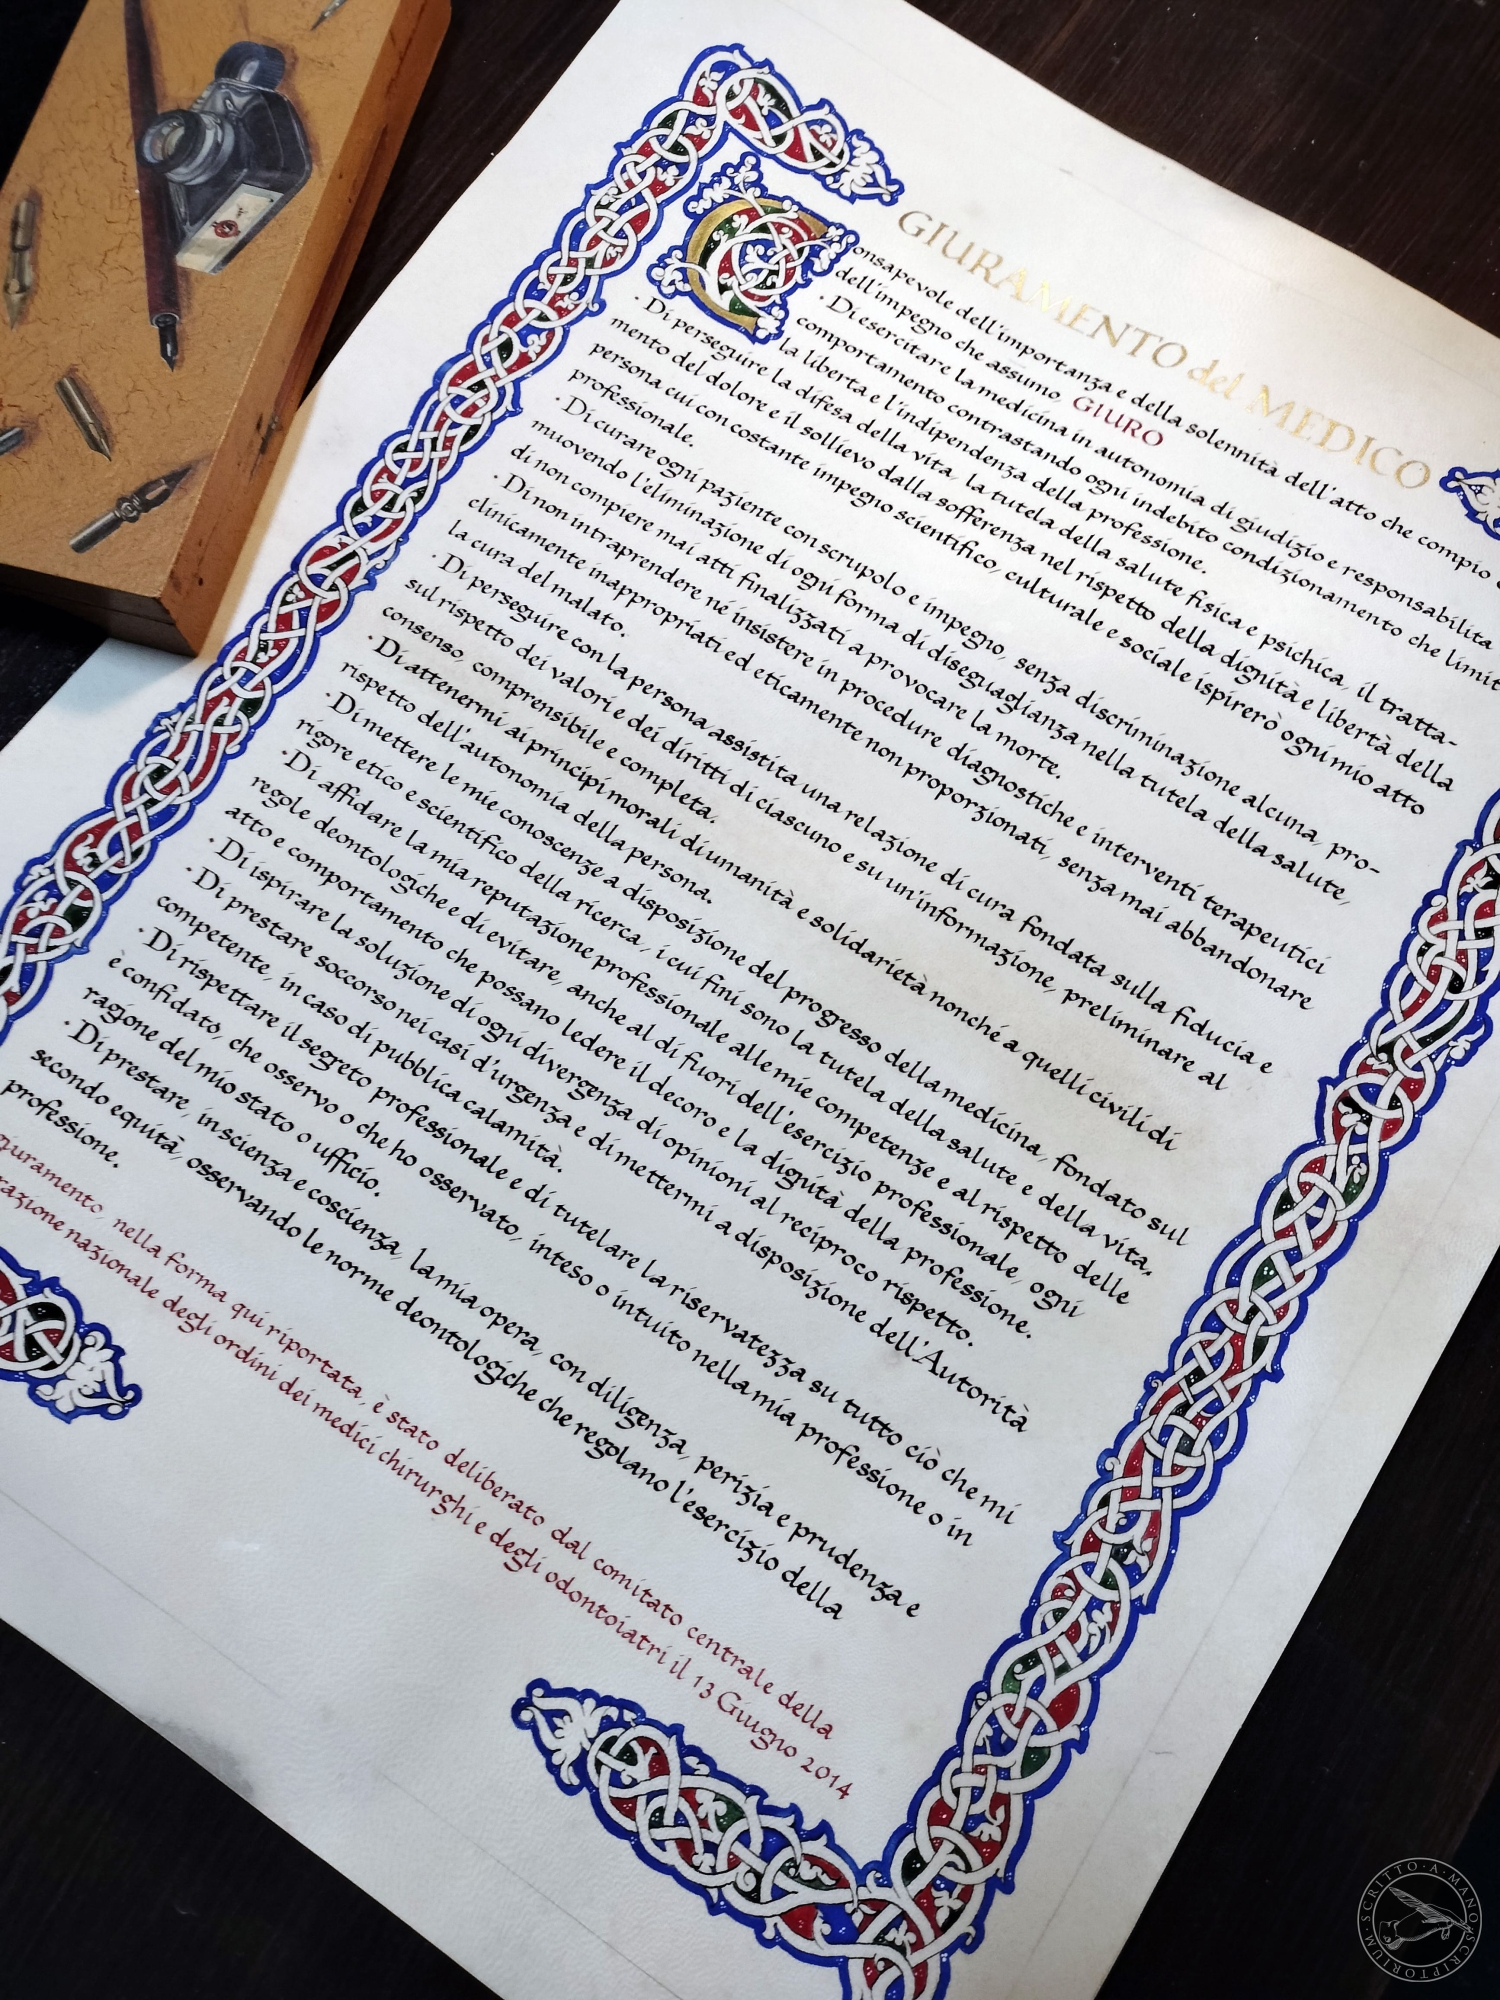 GIURAMENTO del MEDICO
Consapevole dell'importanza e della solennità dell'atto che compio e
dell'impegno che assumo, GIURO
· Di esercitare la medicina in autonomia di giudizio e responsabilità
comportamento contrastando ogni indebito condizionamento che limiti
la libertà e l'indipendenza della professione.
· Di perseguire la difesa della vita, la tutela della salute fisica e psichica, il tratta-
mento del dolore e il sollievo dalla sofferenza nel rispetto della dignità e libertà della
persona cui con costante impegno scientifico, culturale e sociale ispirerò ogni mio atto
professionale.
· Di curare ogni paziente con scrupolo e impegno, senza discriminazione alcuna, pro-
muovendo l'eliminazione di ogni forma di diseguaglianza nella tutela della salute,
di non compiere mai atti finalizzati a provocare la morte.
· Di non intraprendere né insistere in procedure diagnostiche e interventi terapeutici
clinicamente inappropriati ed eticamente non proporzionati, senza mai abbandonare
la cura del malato.
· Di perseguire con la persona assistita una relazione di cura fondata sulla fiducia e
sul rispetto dei valori e dei diritti di ciascuno e su un'informazione, preliminare al
consenso, comprensibile e completa.
· Di attenermi ai principi morali di umanità e solidarietà nonché a quelli civili di
rispetto dell'autonomia della persona.
· Di mettere le mie conoscenze a disposizione del progresso della medicina, fondato sul
rigore etico e scientifico della ricerca, i cui fini sono la tutela della salute e della vita.
· Di affidare la mia reputazione professionale alle mie competenze e al rispetto delle
regole deontologiche e di evitare, anche al di fuori dell'esercizio professionale, ogni
atto e comportamento che possano ledere il decoro e la dignità della professione.
· Di ispirare la soluzione di ogni divergenza di opinioni al reciproco rispetto.
· Di prestare soccorso nei casi d'urgenza e di mettermi a disposizione dell'Autorità
competente, in caso di pubblica calamità.
· Di rispettare il segreto professionale e di tutelare la riservatezza su tutto ciò che mi
è confidato, che osservo o che ho osservato, inteso o intuito nella mia professione o in
ragione del mio stato o ufficio.
· Di prestare, in scienza e coscienza, la mia opera, con diligenza, perizia e prudenza e
secondo equità, osservando le norme deontologiche che regolano l'esercizio della
professione.
giuramento, nella forma qui riportata, è stato deliberato dal comitato centrale della
nazionale degli ordini dei medici chirurghi e degli odontoiatri il 13 Giugno 2014
SCRITTO · A · MANO · SCRIPTORIUM